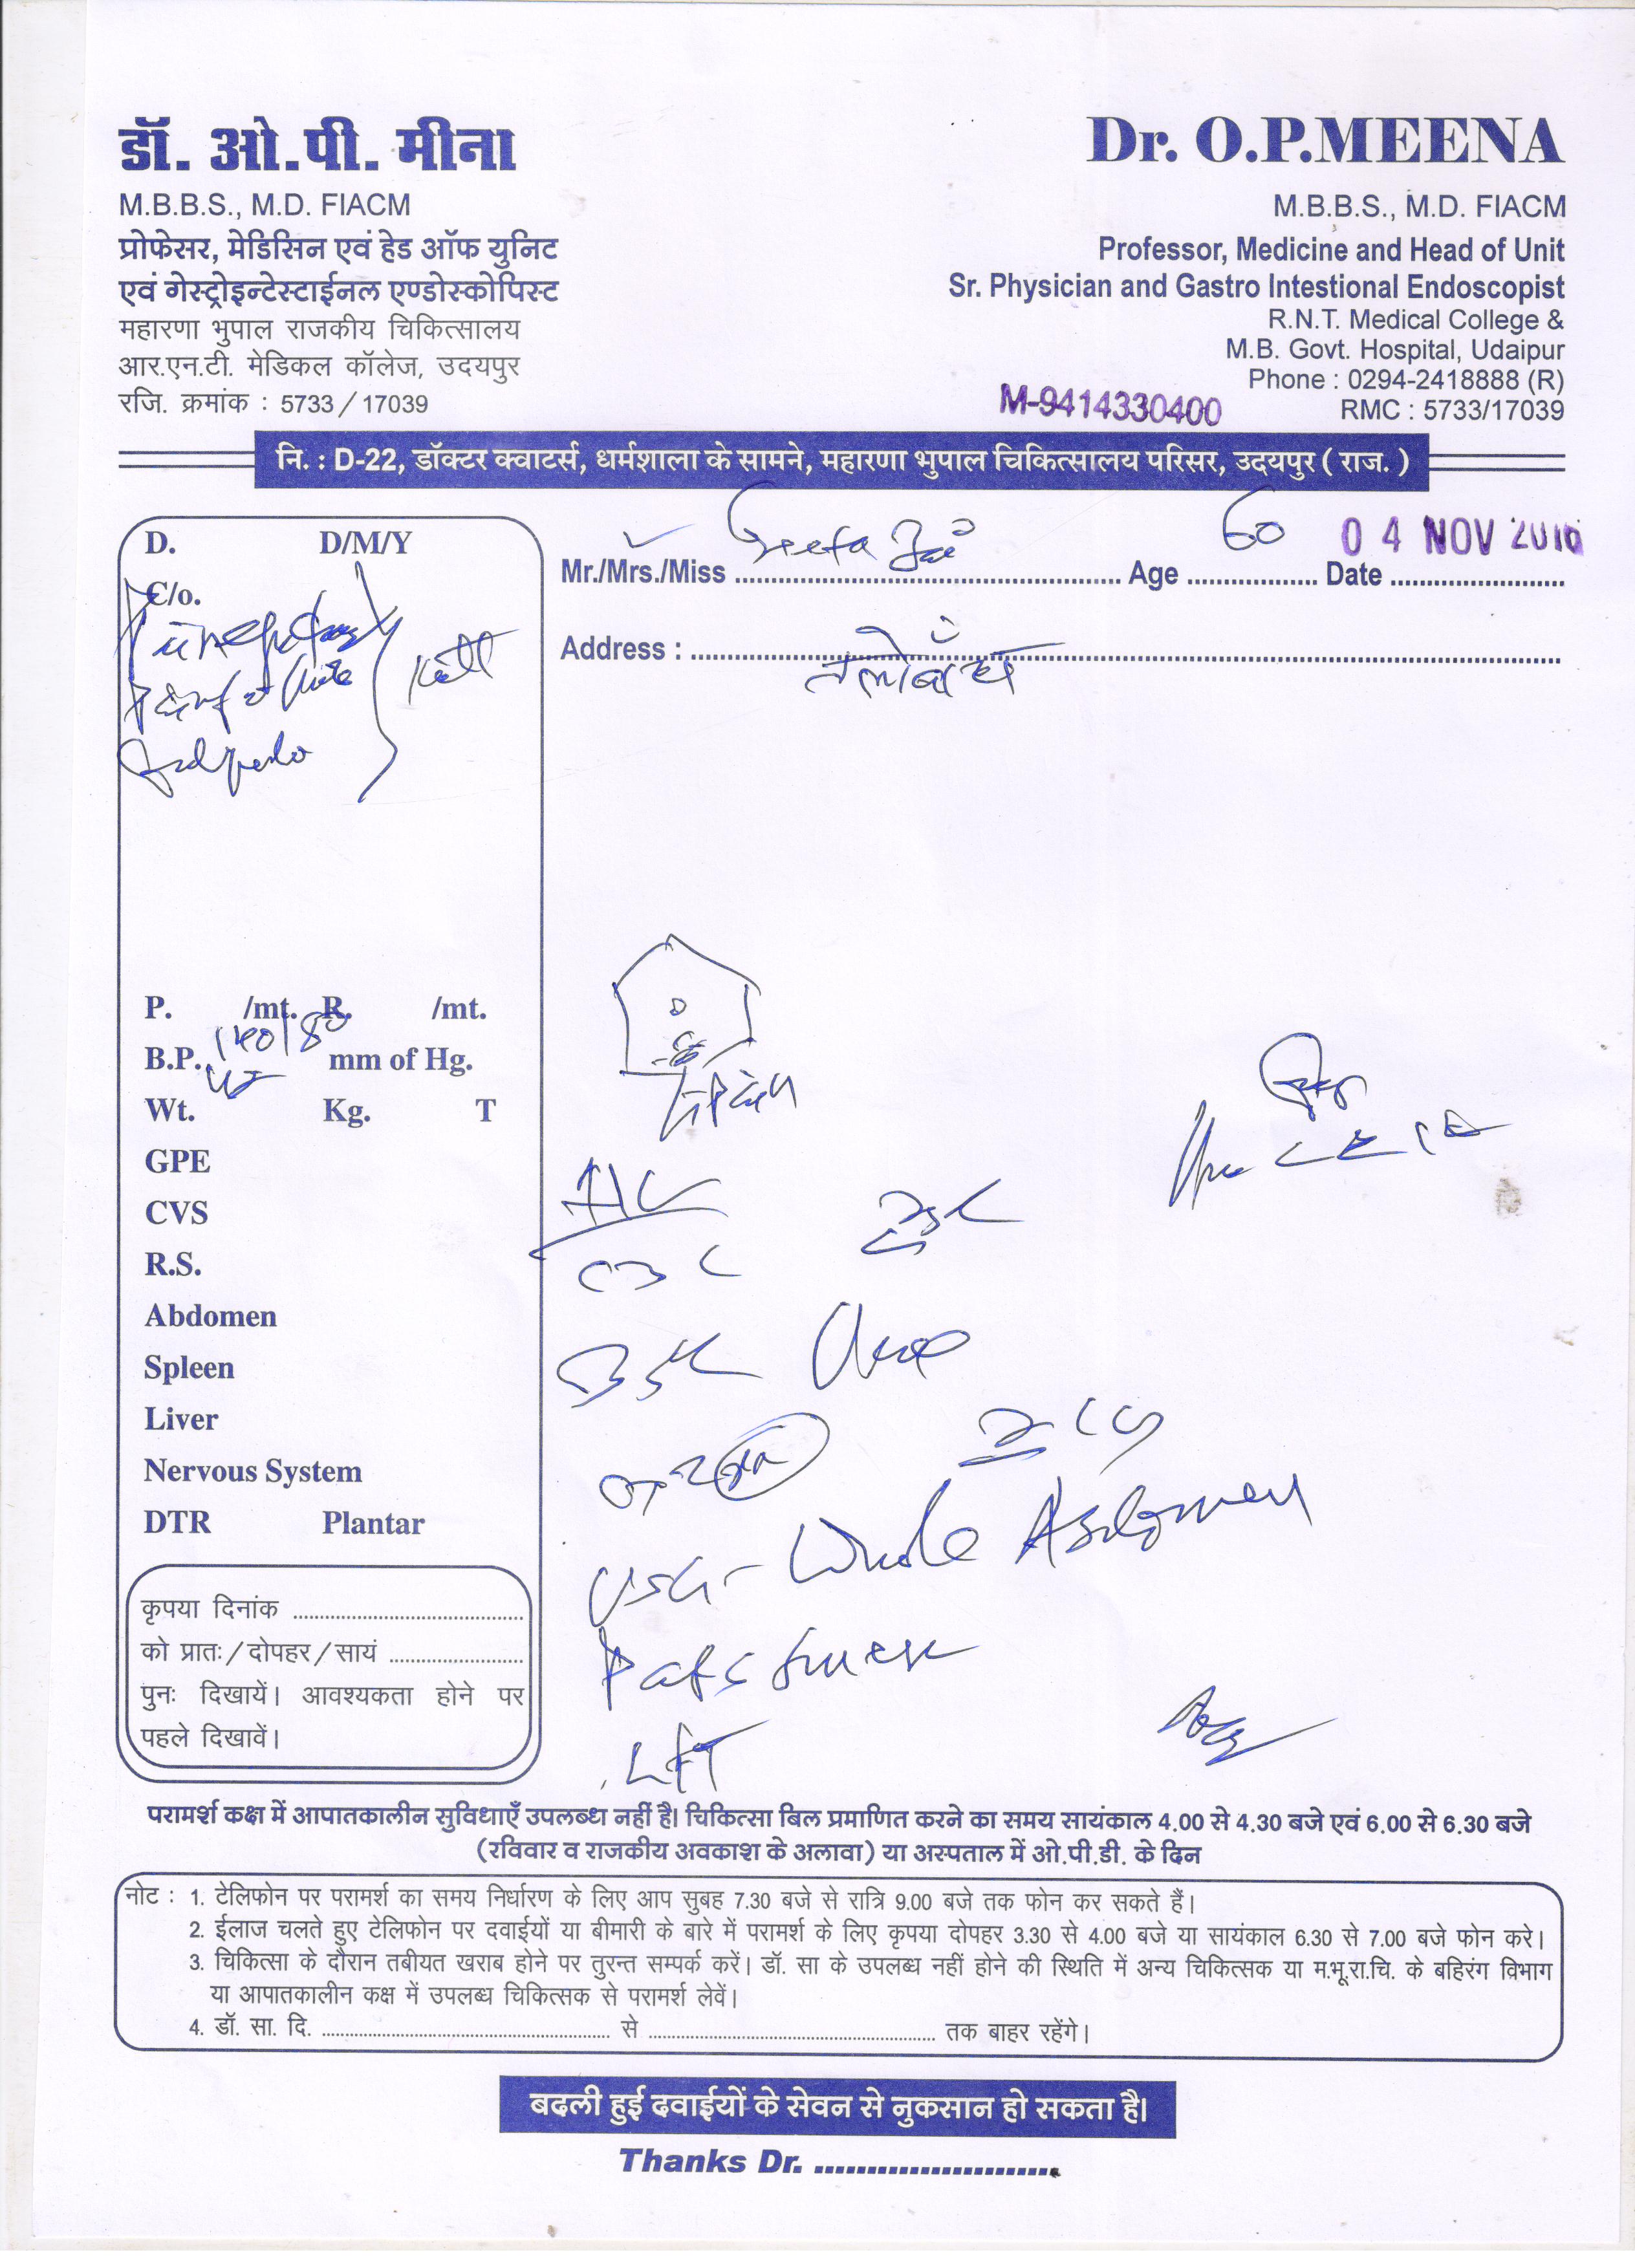 डॉ. ओ.पी. मीना
M.B.B.S., M.D. FIACM
प्रोफेसर, मेडिसिन एवं हेड ऑफ युनिट
एवं गेस्ट्रोइन्टेस्टाईनल एण्डोस्कोपिस्ट
महारणा भुपाल राजकीय चिकित्सालय
आर.एन.टी. मेडिकल कॉलेज, उदयपुर
रजि. क्रमांक : 5733/17039
Dr. O.P.MEENA
M.B.B.S., M.D. FIACM
Professor, Medicine and Head of Unit
Sr. Physician and Gastro Intestional Endoscopist
R.N.T. Medical College &
M.B. Govt. Hospital, Udaipur
Phone : 0294-2418888 (R)
M-9414330400
RMC : 5733/17039
नि. : D-22, डॉक्टर क्वाटर्स, धर्मशाला के सामने, महारणा भुपाल चिकित्सालय परिसर, उदयपुर ( राज. )
Mr./Mrs./Miss Geeta Age 60 Date 04 NOV 2016
Address :
D. D/M/Y
C/o.
P. /mt. R. /mt.
B.P. 140/80 mm of Hg.
Wt. Kg. T
GPE
CVS
R.S.
Abdomen
Spleen
Liver
Nervous System
DTR Plantar
CBC
USG- Whole Abdomen
Paps smear
LFT
कृपया दिनांक ..........
को प्रातः/दोपहर/सायं ..........
पुनः दिखायें। आवश्यकता होने पर
पहले दिखावें।
परामर्श कक्ष में आपातकालीन सुविधाएँ उपलब्ध नहीं है। चिकित्सा बिल प्रमाणित करने का समय सायंकाल 4.00 से 4.30 बजे एवं 6.00 से 6.30 बजे
(रविवार व राजकीय अवकाश के अलावा) या अस्पताल में ओ.पी.डी. के दिन
नोट : 1. टेलिफोन पर परामर्श का समय निर्धारण के लिए आप सुबह 7.30 बजे से रात्रि 9.00 बजे तक फोन कर सकते हैं।
2. ईलाज चलते हुए टेलिफोन पर दवाईयों या बीमारी के बारे में परामर्श के लिए कृपया दोपहर 3.30 से 4.00 बजे या सायंकाल 6.30 से 7.00 बजे फोन करे।
3. चिकित्सा के दौरान तबीयत खराब होने पर तुरन्त सम्पर्क करें। डॉ. सा के उपलब्ध नहीं होने की स्थिति में अन्य चिकित्सक या म.भू.रा.चि. के बहिरंग विभाग
या आपातकालीन कक्ष में उपलब्ध चिकित्सक से परामर्श लेवें।
4. डॉ. सा. दि. .......... से .......... तक बाहर रहेंगे।
बदली हुई दवाईयों के सेवन से नुकसान हो सकता है।
Thanks Dr. ..........